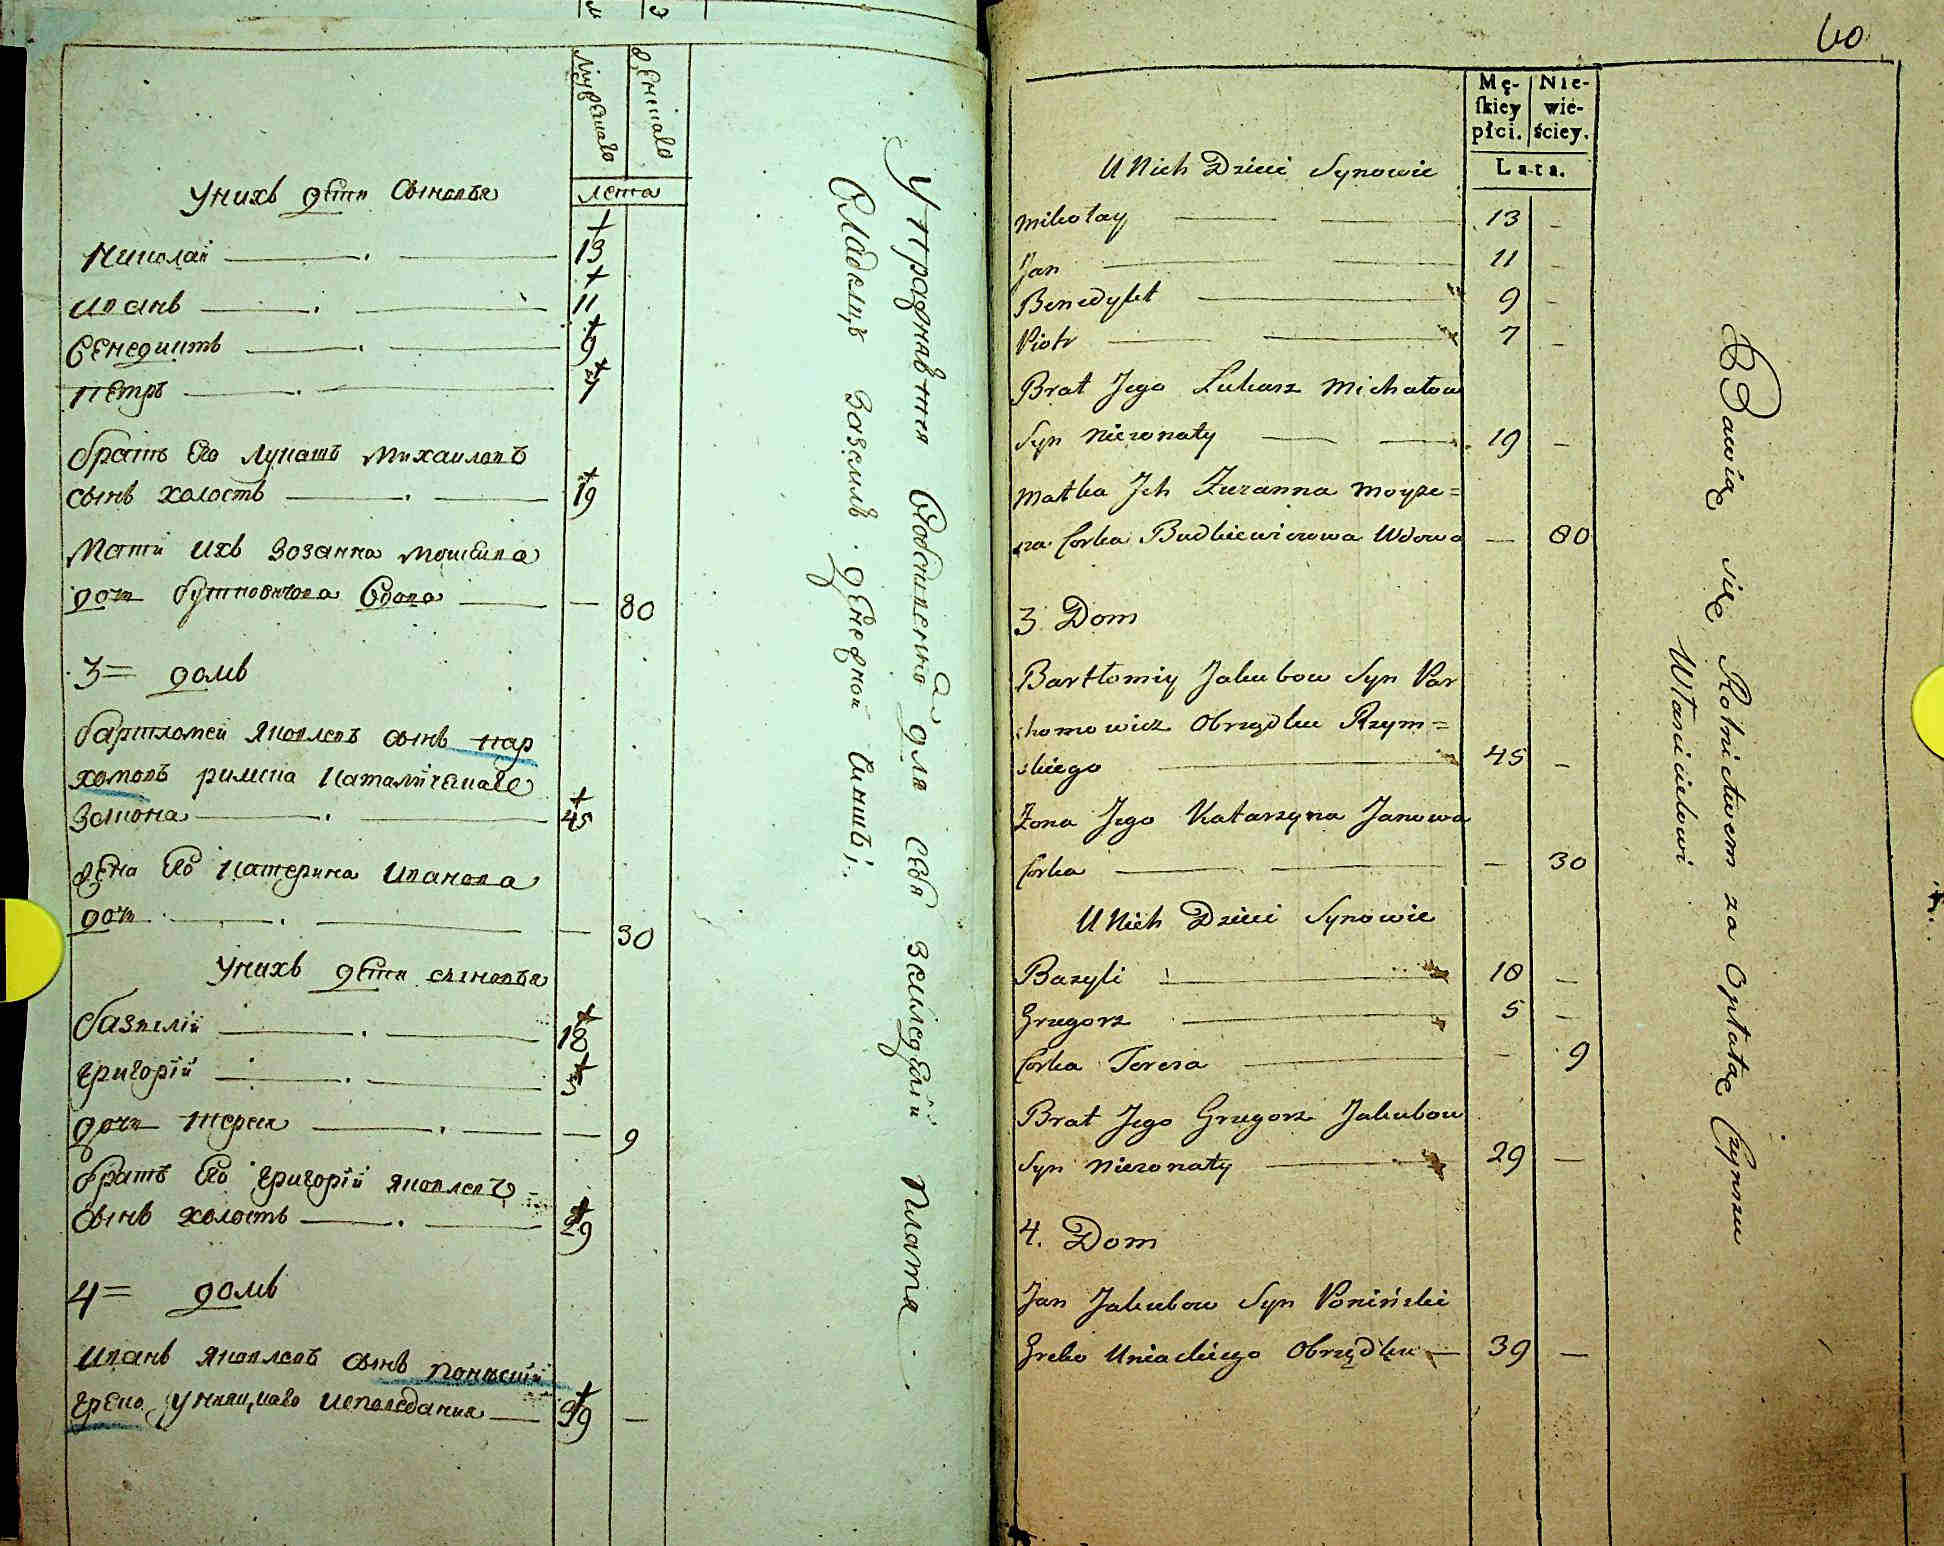 мужескаго
женскаго
лета
У нихъ дети Сыновья
Николай 13
Иванъ 11
Бенедиктъ 9
Петръ 7
братъ Его Лукашъ Михаиловъ
сынъ холостъ 19
Мати ихъ Зозанна Мошеива
дочь Буткевичова Вдова — 80
3= домъ
бартломей Яковлевъ сынъ пар
хомовъ римска Католическаго
Закона 45
жена Его Катерина Иванова
дочь — 30
У нихъ дети сыновья
базилій 18
григорій 5
дочь тереса — 9
братъ Его григорій яковлевъ
сынъ холостъ 29
4= домъ
Иванъ яковлевъ сынъ Понинскій
греко униацкаго исповедания 39 —
упражняются для себя земледелій плата
Владелцъ денежной чиншъ
60
Mę-
skiey
płci.
Nie-
wie-
ściey.
Lata.
U Nich Dzieci Synowie
Mikołay 13 -
Jan 11 -
Benedykt 9 -
Piotr 7 -
Brat Jego Łukasz Michałow
Syn Nieżonaty 19 -
Matka Jch Zuzanna Moyze=
na Corka Budkiewiczowa Wdowa — 80
3 Dom
Bartłomiy Jakubow Syn Par
chomowicz Obrządku Rzym=
skiego 45 -
Żona Jego Katarzyna Janowa
Corka — 30
U Nich Dzieci Synowie
Bazyli 18 -
Grzegorz 5 -
Corka Teresa - 9
Brat Jego Grzegorz Jakubow
Syn Nieżonaty 29 —
4. Dom
Jan Jakubow Syn Poniński
Greko Uniackiego Obrządku — 39 —
Bawią się Rolnictwem za Opłatą Czynszu
Włascicielowi